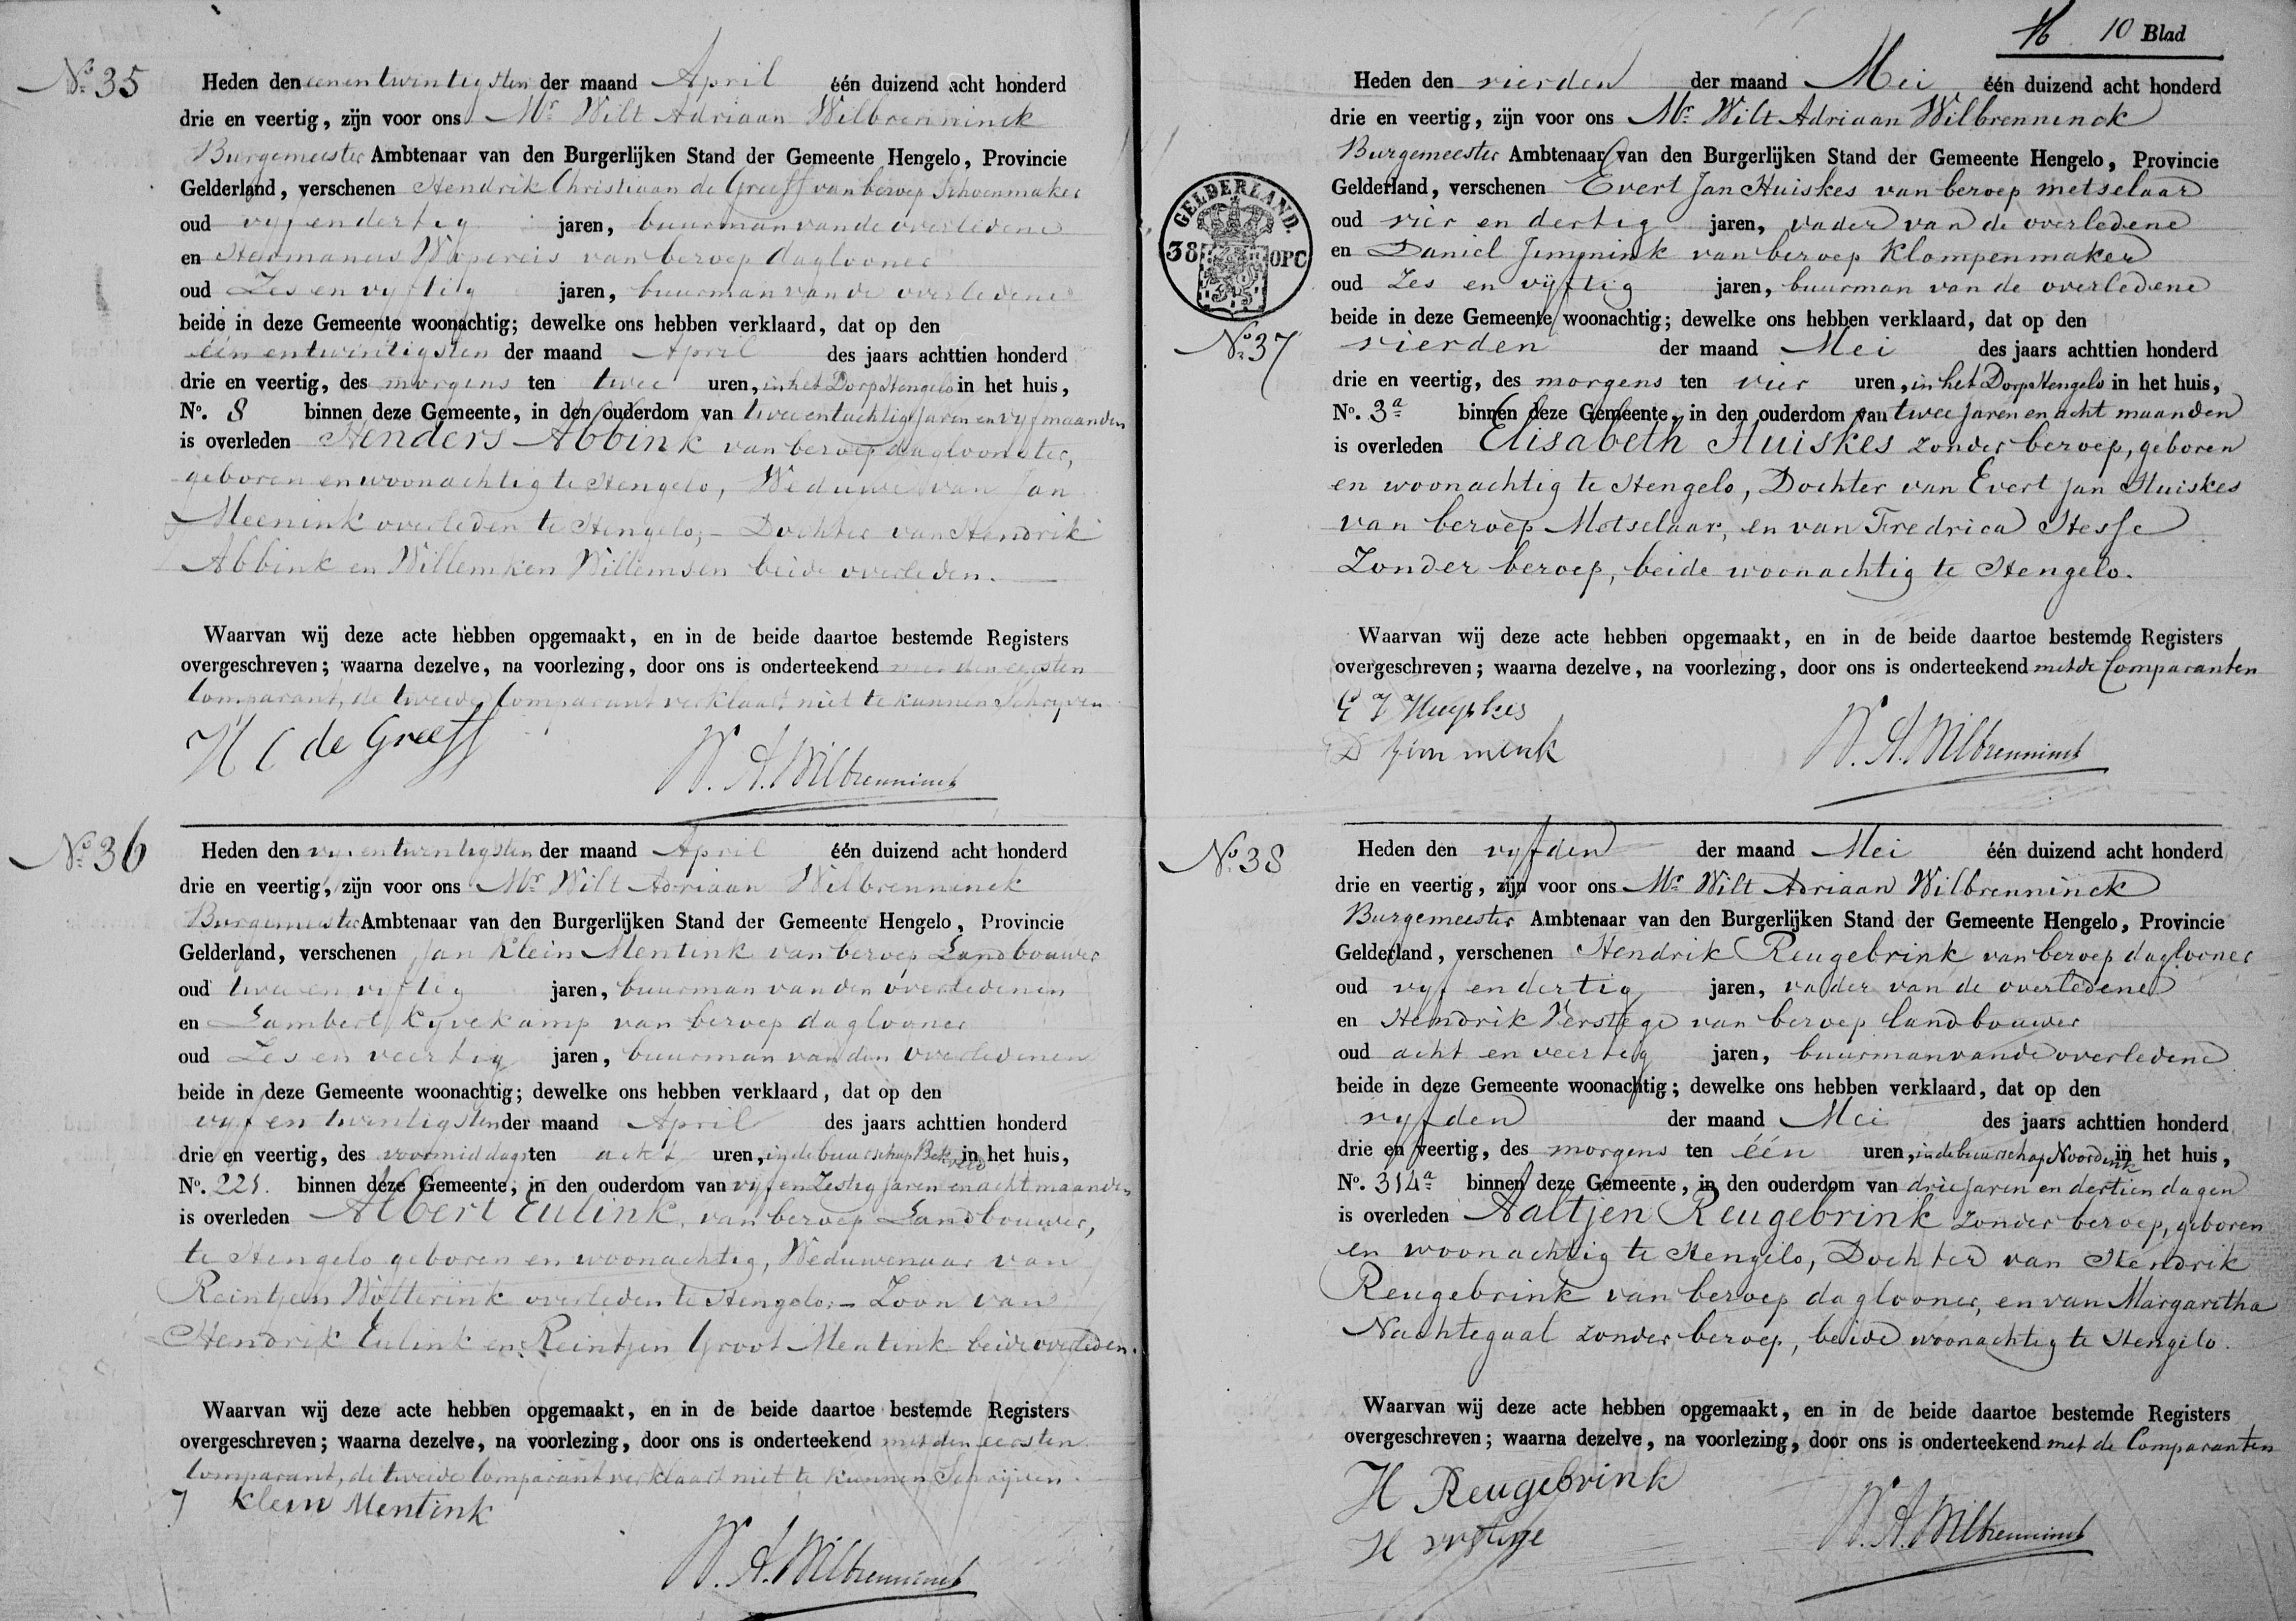 No. 35
Heden den eenentwintigsten der maand April één duizend acht honderd
drie en veertig, zijn voor ons Mr. Wilt Adriaan Wilbrenninck
Burgemeester Ambtenaar van den Burgerlijken Stand der Gemeente Hengelo, Provincie
Gelderland, verschenen Hendrik Christiaan de Greeff van beroep Schoenmaker
oud vijf en dertig jaren, buurman van de overledene
en Hermanus Wopereis van beroep daglooner
oud Zes en vyftig jaren, buurman van de overledene
beide in deze Gemeente woonachtig; dewelke ons hebben verklaard, dat op den
één entwintigsten der maand April des jaars achttien honderd
drie en veertig, des morgens ten twee uren, in het Dorp Hengelo in het huis,
No. 8 binnen deze Gemeente, in den ouderdom van twee entachtig Jaren en vyf maanden
is overleden Henders Abbink van beroep dagloonster,
geboren en woonachtig te Hengelo, Weduwe van Jan
Meenink overleden te Hengelo; – Dochter van Hendrik
Abbink en Willemken Willemsen beide overleden.
Waarvan wij deze acte hebben opgemaakt, en in de beide daartoe bestemde Registers
overgeschreven; waarna dezelve, na voorlezing, door ons is onderteekend met den eersten
Comparant, de tweede Comparant verklaart niet te kunnen Schryven
H C de Greeff
W. A. Wilbrenninck
No. 36
Heden den vyf entwintigsten der maand April één duizend acht honderd
drie en veertig, zijn voor ons Mr. Wilt Adriaan Wilbrenninck
Burgemeester Ambtenaar van den Burgerlijken Stand der Gemeente Hengelo, Provincie
Gelderland, verschenen Jan Klein Mentink van beroep Landbouwer
oud twee en vyftig jaren, buurman van den overledenen
en Lambert Kyvekamp van beroep daglooner
oud Zes en veertig jaren, buurman van den overledenen
beide in deze Gemeente woonachtig; dewelke ons hebben verklaard, dat op den
vyf en twintigsten der maand April des jaars achttien honderd
drie en veertig, des voormiddags ten acht uren, in de buurschap Bekveld in het huis,
No. 221. binnen deze Gemeente, in den ouderdom van vyf en Zestig Jaren en acht maanden
is overleden Albert Eulink, van beroep Landbouwer,
te Hengelo geboren en woonachtig, Weduwenaar van
Reintjen Wolterink overleden te Hengelo; – Zoon van
Hendrik Eulink en Reintjen Groot Mentink beide overleden.
Waarvan wij deze acte hebben opgemaakt, en in de beide daartoe bestemde Registers
overgeschreven; waarna dezelve, na voorlezing, door ons is onderteekend met den eersten
Comparant, de tweede Comparant verklaart niet te kunnen Schrijven
J Klein Mentink
W. A. Wilbrenninck
10 Blad
GELDERLAND.
38 OPC
No. 37
Heden den vierden der maand Mei één duizend acht honderd
drie en veertig, zijn voor ons Mr. Wilt Adriaan Wilbrenninck
Burgemeester Ambtenaar van den Burgerlijken Stand der Gemeente Hengelo, Provincie
Gelderland, verschenen Evert Jan Huiskes van beroep metselaar
oud vier en dertig jaren, vader van de overledene
en Daniel Jimmink van beroep Klompenmaker
oud Zes en vyftig jaren, buurman van de overledene
beide in deze Gemeente woonachtig; dewelke ons hebben verklaard, dat op den
vierden der maand Mei des jaars achttien honderd
drie en veertig, des morgens ten vier uren, in het Dorp Hengelo in het huis,
No. 3a binnen deze Gemeente, in den ouderdom van twee Jaren en acht maanden
is overleden Elisabeth Huiskes zonder beroep, geboren
en woonachtig te Hengelo, Dochter van Evert Jan Huiskes
van beroep Metselaar, en van Fredrica Hesse
Zonder beroep, beide woonachtig te Hengelo.
Waarvan wij deze acte hebben opgemaakt, en in de beide daartoe bestemde Registers
overgeschreven; waarna dezelve, na voorlezing, door ons is onderteekend met de Comparanten
E J Huyskes
D Jimmink
W. A. Wilbrenninck
No. 38
Heden den vyfden der maand Mei één duizend acht honderd
drie en veertig, zijn voor ons Mr. Wilt Adriaan Wilbrenninck
Burgemeester Ambtenaar van den Burgerlijken Stand der Gemeente Hengelo, Provincie
Gelderland, verschenen Hendrik Reugebrink van beroep daglooner
oud vyf en dertig jaren, vader van de overledene
en Hendrik Verstege van beroep landbouwer
oud acht en veertig jaren, buurman van de overledene
beide in deze Gemeente woonachtig; dewelke ons hebben verklaard, dat op den
vyfden der maand Mei des jaars achttien honderd
drie en veertig, des morgens ten één uren, in de buurschap Noordink in het huis,
No. 314a binnen deze Gemeente, in den ouderdom van drie Jaren en dertien dagen
is overleden Aaltjen Reugebrink zonder beroep, geboren
en woonachtig te Hengelo, Dochter van Hendrik
Reugebrink van beroep daglooner, en van Margaretha
Nachtegaal zonder beroep, beide woonachtig te Hengelo.
Waarvan wij deze acte hebben opgemaakt, en in de beide daartoe bestemde Registers
overgeschreven; waarna dezelve, na voorlezing, door ons is onderteekend met de Comparanten
H Reugebrink
H
W. A. Wilbrenninck